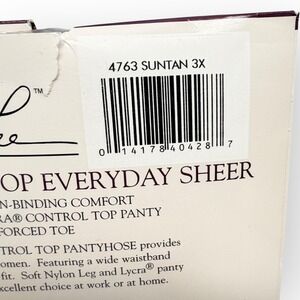 4763 SUNTAN 3X
™
0 14178 40428 7
OP EVERYDAY SHEER
N-BINDING COMFORT
RA® CONTROL TOP PANTY
FORCED TOE
TROL TOP PANTYHOSE provides
omen. Featuring a wide waistband
fit. Soft Nylon Leg and Lycra® panty
excellent choice at work or at home.